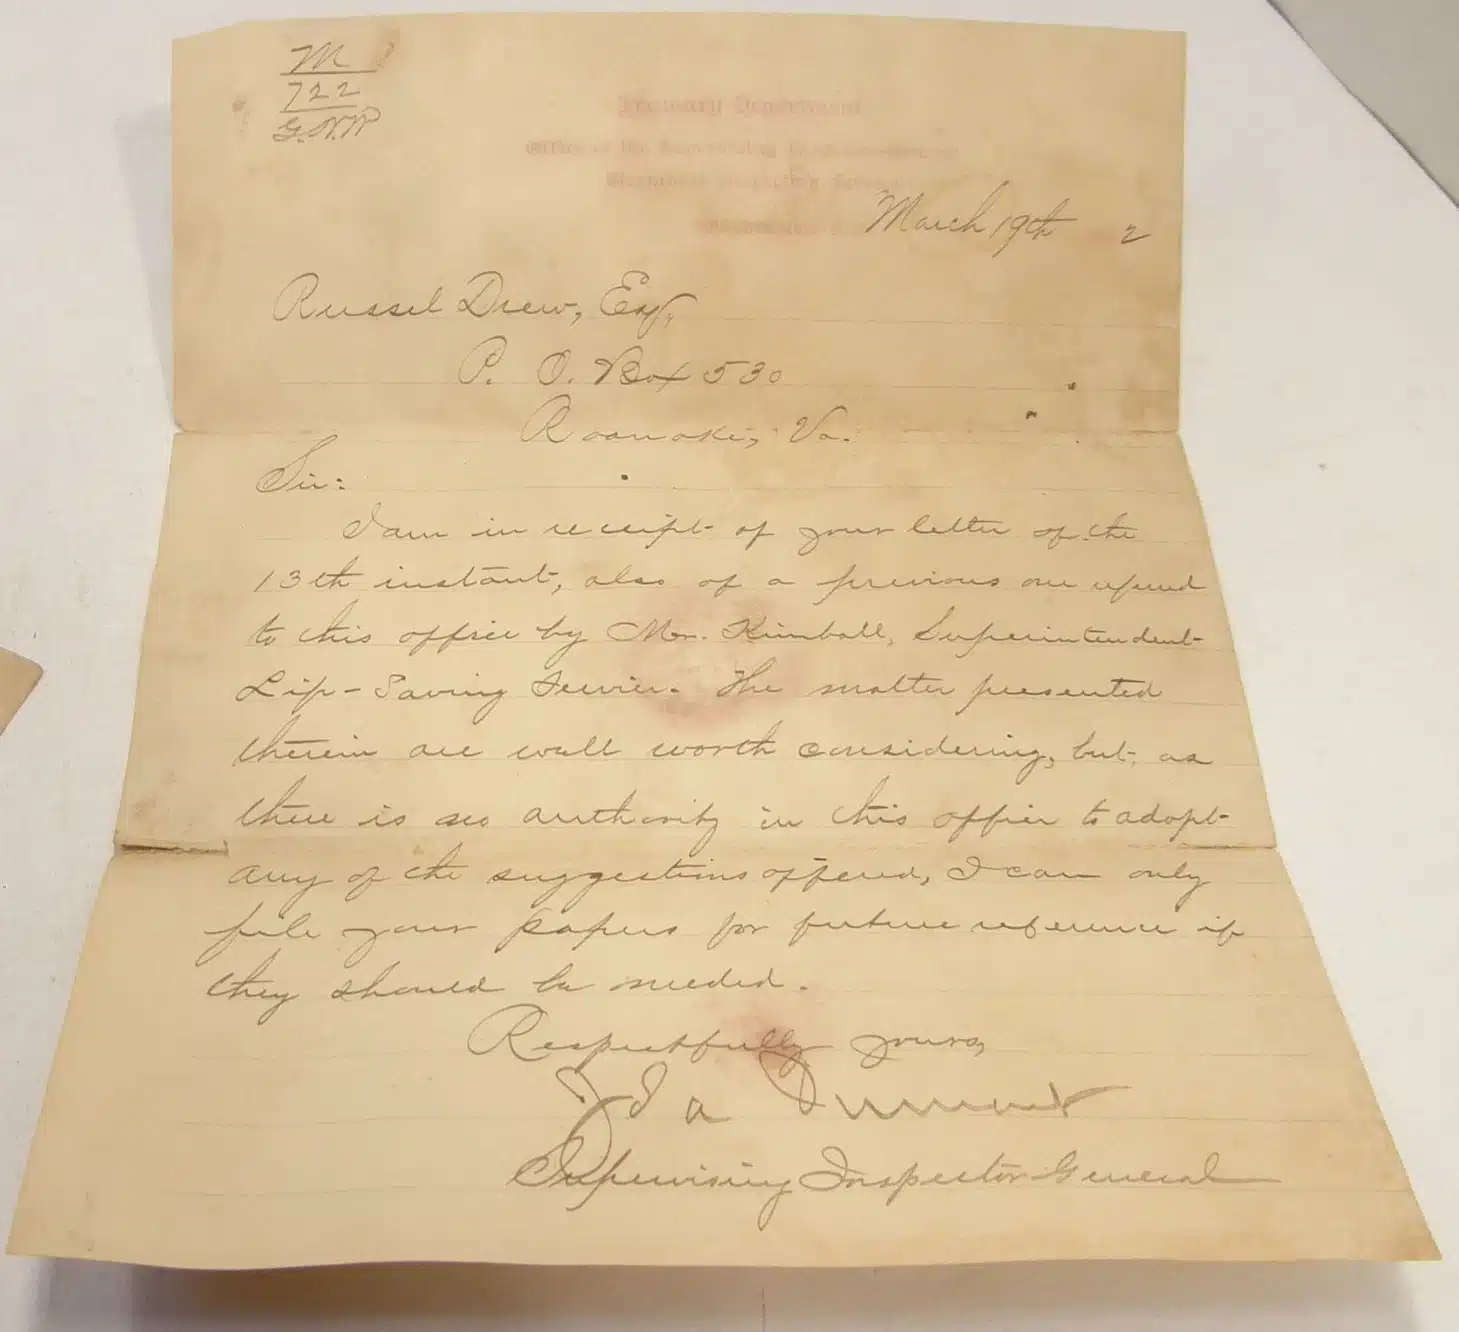 M
722
G.N.P
Treasury Department
Office of the Supervising Inspector General
Steamboat Inspection Service
March 19th 2
Russel Drew, Esq,
P. O. Box 530
Roanoke, Va.
Sir:
I am in receipt of your letter of the
13th instant, also of a previous one referred
to this office by Mr. Kimball, Superintendent
Life-Saving Service. The matter presented
therein are well worth considering, but as
there is no authority in this office to adopt
any of the suggestions offered, I can only
file your papers for future reference if
they should be needed.
Respectfully yours,
Dumont
Supervising Inspector General